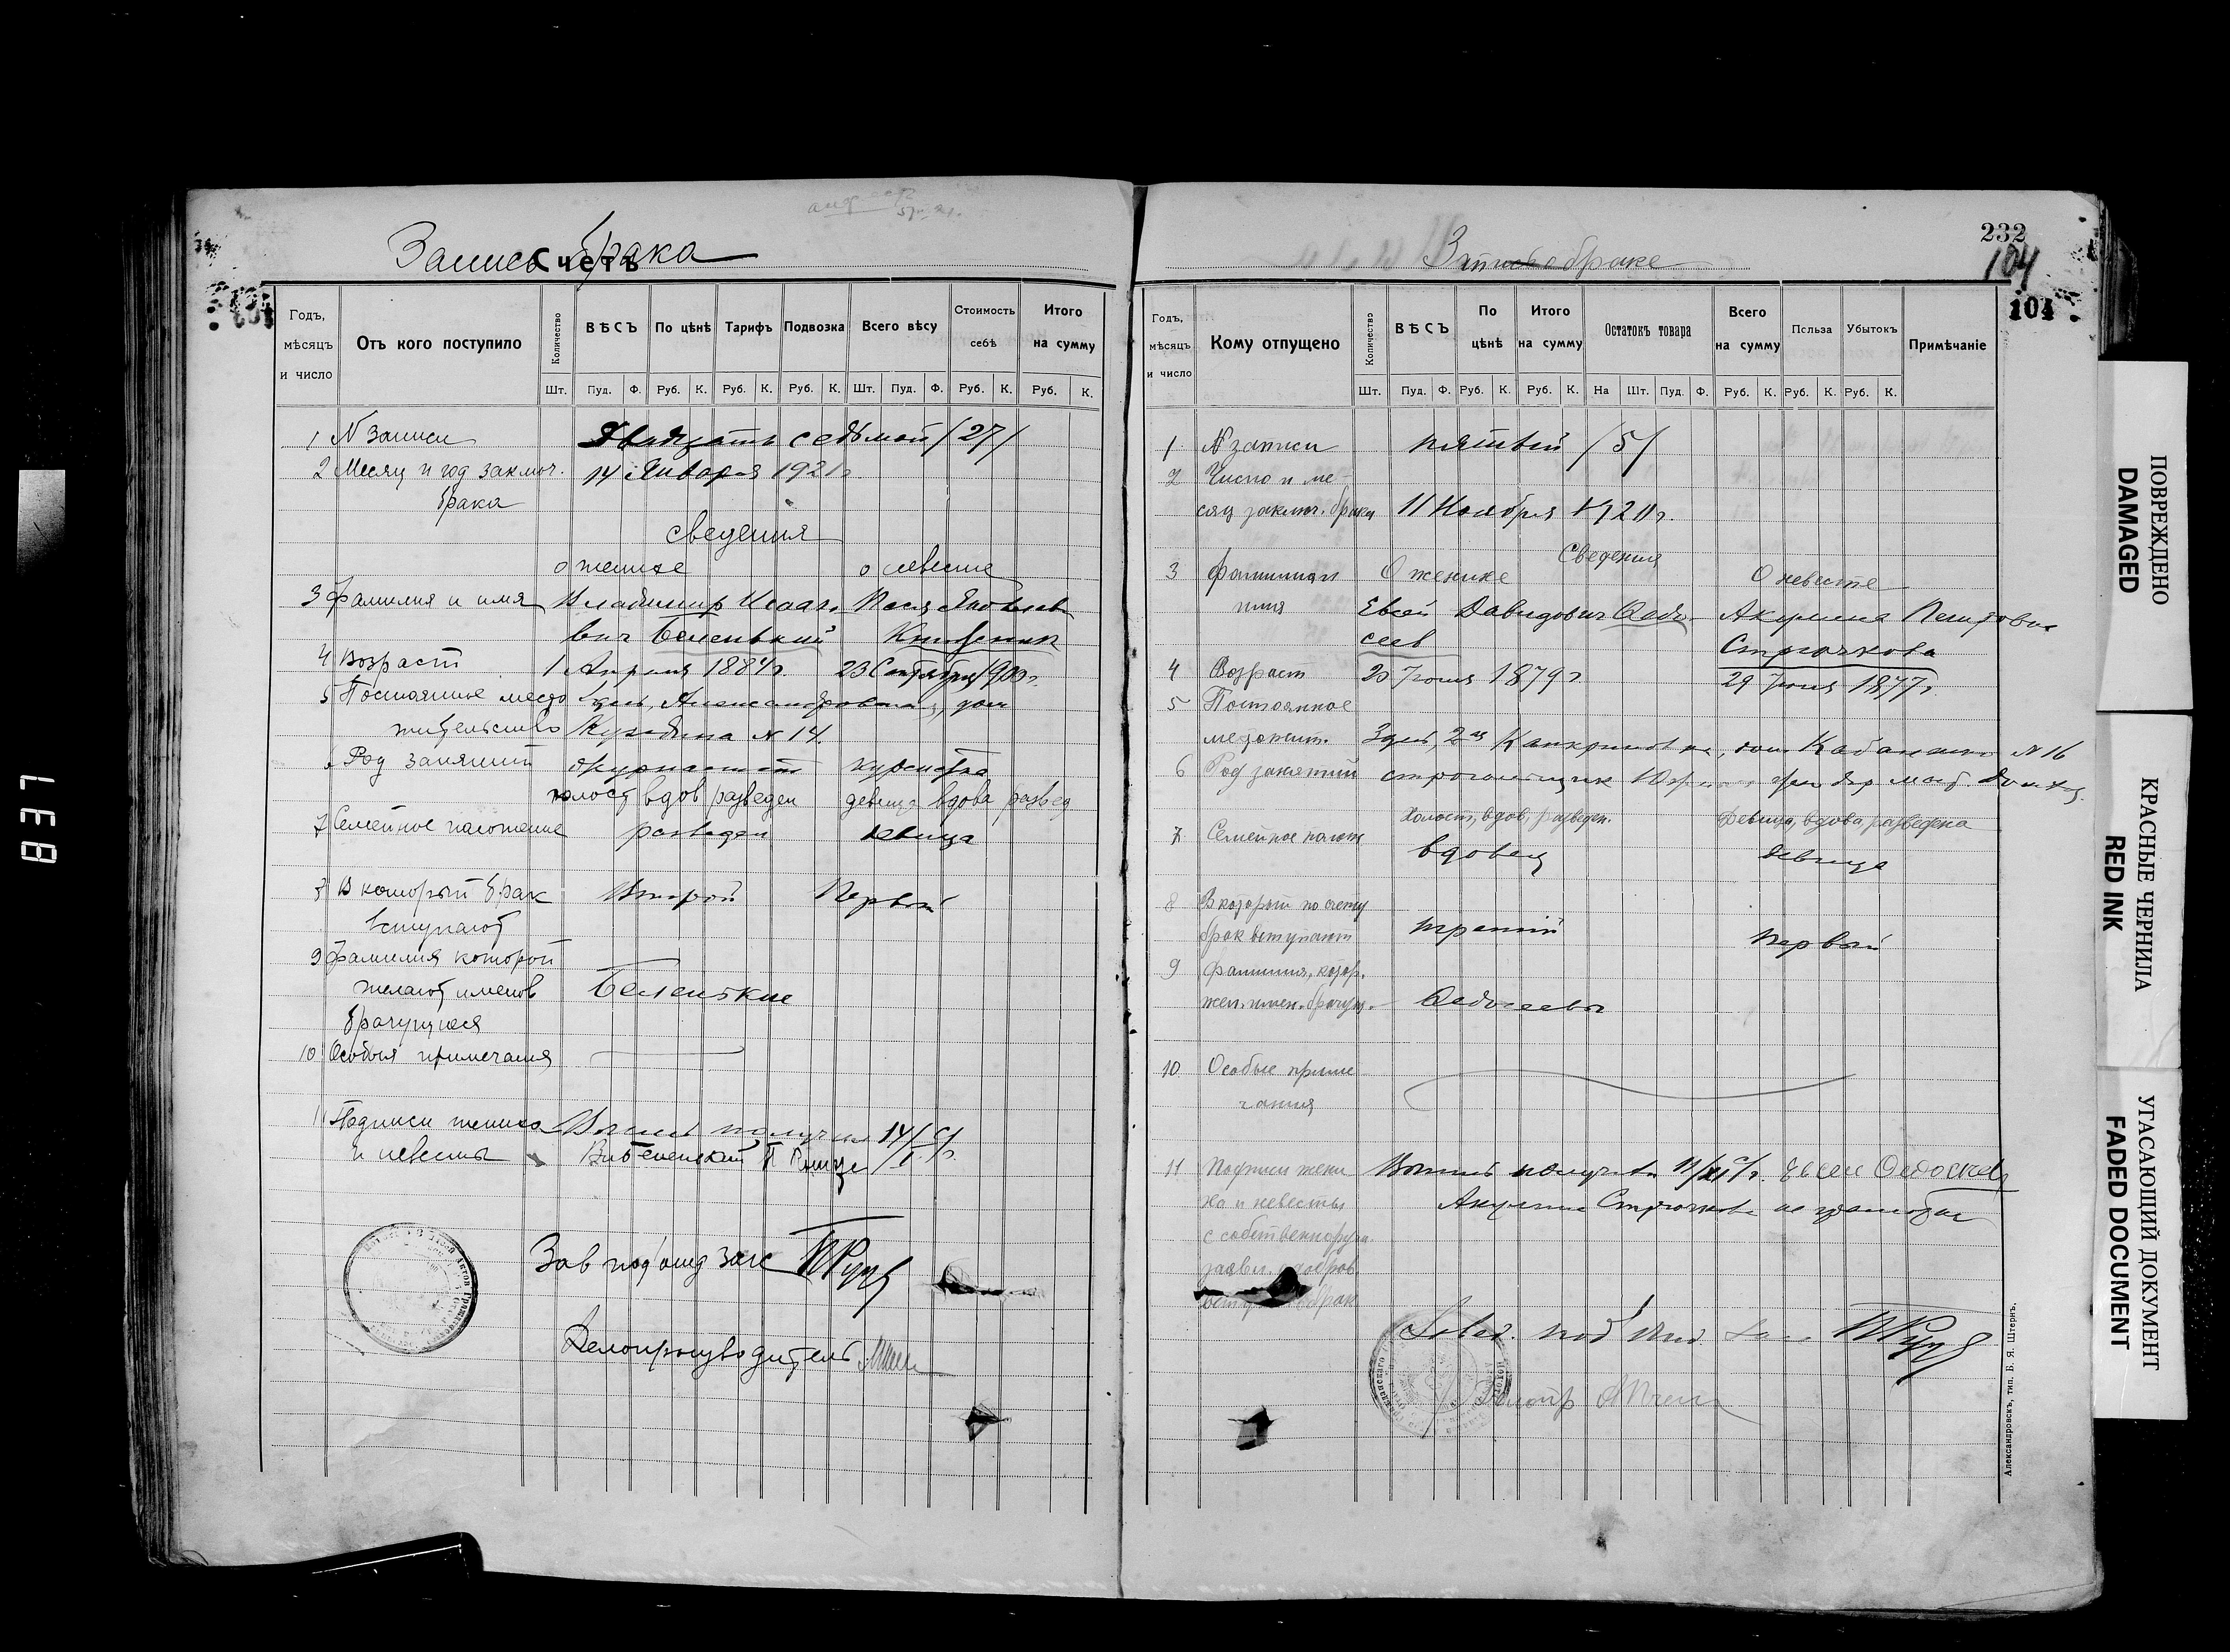 232
104
104
Запись брака
Счетъ
Годъ, мѣсяцъ и число
Отъ кого поступило
Количество
ВѢСЪ
По цѣнѣ
Тарифъ
Подвозка
Всего вѣсу
Стоимость себѣ
Итого на сумму
Шт. Пуд. Ф. Руб. К. Руб. К. Руб. К. Шт. Пуд. Ф. Руб. К. Руб. К.
1 N записи Двадцать седьмой /27/
2 Месяц и год заключ. 14 Января 1921 г.
брака
сведения
о женихе о невесте
3 Фамилия и имя Владимир Исаако Песя Яковлев
вич Беленький
4 Возраст 1 Апреля 1884 г. 23 Сентября 1900 г.
5 Постоянное место здесь, Александровск, дом
жительство N 14.
6 Род занятий журналист курсистка
холост вдов разведен девица вдова развед
7 Семейное положение разведен девица
8 В который брак Второй Первый
вступают
9 Фамилия которой
желают именов Беленькие
брачущиеся
10 Особыя примечания
11 Подписи жениха Выпись получил 14/I с/г.
и невесты
Зав подотд загс
Делопроизводитель
Запись о браке
Годъ, мѣсяцъ и число
Кому отпущено
Количество
ВѢСЪ
По цѣнѣ
Итого на сумму
Остатокъ товара
Всего на сумму
Польза
Убытокъ
Примѣчаніе
Шт. Пуд. Ф. Руб. К. Руб. К. На Шт. Пуд. Ф. Руб. К. Руб. К. Руб. К.
1 N записи пятый /5/
2 Число и ме
сяц заключ. брака 11 Ноября 1920 г.
Сведения
3 Фамилия и О женихе О невесте
имя Евсей Давидович Федо Акулина Петровна
сеев Стрючкова
4 Возраст 1879 г. 29 Июня 1877 г.
5 Постоянное
место жит. Здесь, 2ая дом N 16
6 Род занятий строгальщик
Холост, вдов, разведен. Девица, вдова, разведена
7 Семейное полож вдовец девица
8 В который по счету
брак вступают третий первый
9 Фамилия, котор.
жел. имен. брачущ. Федосеевы
10 Особые приме
чания
11 Подписи жени Выпись получил 11/XI с/г. Евсей Федосеев
ха и невесты Акулина Стрючкова не грамотна
с собственноручн
Завед. под отд. Загс
Делопр
Александровскъ, тип. Б. Я. Штернъ.
ПОВРЕЖДЕНО
DAMAGED
КРАСНЫЕ ЧЕРНИЛА
RED INK
УГАСАЮЩИЙ ДОКУМЕНТ
FADED DOCUMENT